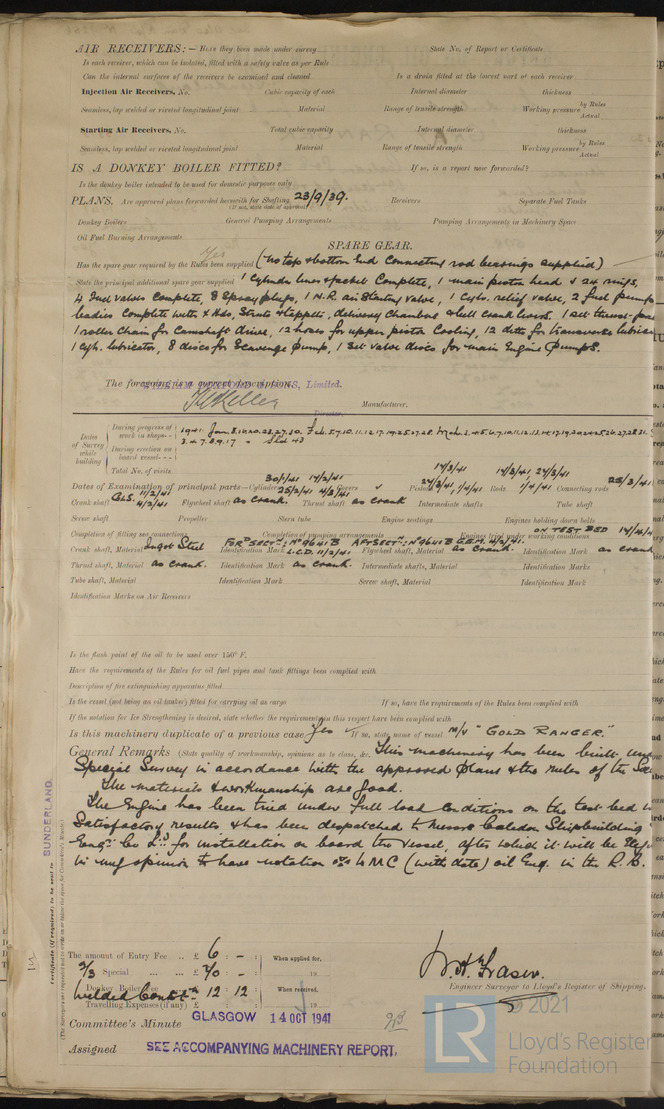 AIR RECEIVERS:— Have they been made under survey State No. of Report or Certificate
Is each receiver, which can be isolated, fitted with a safety valve as per Rule
Can the internal surfaces of the receivers be examined and cleaned Is a drain fitted at the lowest part of each receiver
Injection Air Receivers, No. Cubic capacity of each Internal diameter thickness
Seamless, lap welded or riveted longitudinal joint Material Range of tensile strength Working pressure by Rules Actual
Starting Air Receivers, No. Total cubic capacity Internal diameter thickness
Seamless, lap welded or riveted longitudinal joint Material Range of tensile strength Working pressure by Rules Actual
IS A DONKEY BOILER FITTED? If so, is a report now forwarded?
Is the donkey boiler intended to be used for domestic purposes only
PLANS. Are approved plans forwarded herewith for Shafting 23/9/39. Receivers Separate Fuel Tanks
(If not, state date of approval)
Donkey Boilers General Pumping Arrangements Pumping Arrangements in Machinery Space
Oil Fuel Burning Arrangements
SPARE GEAR.
Has the spare gear required by the Rules been supplied Yes (no top & bottom End Connecting rod bearings supplied)
State the principal additional spare gear supplied 1 Cylinder liner & jacket Complete, 1 main piston head & 24 rings,
4 Fuel valves Complete, 8 Spray plugs, 1 N.R. air Starting valve, 1 Cyls. relief valve, 2 fuel pump
bodies Complete with
1 roller chain for Camshaft drive, 12 hoses for upper piston Cooling, 12 ditto for transverse
1 Cyl. lubricator, 8 discs for Scavenge pump, 1 set valve discs for main Engine pumps.
The foregoing is a correct description, Limited.
Manufacturer.
Director
Dates of Survey while building
During progress of work in shops - - 1941. Jan. 8.
During erection on board vessel - - -
Total No. of visits
Dates of Examination of principal parts—Cylinders 30/1/41 14/2/41 25/2/41 4/3/41 Covers Pistons 14/3/41 24/3/41 1/4/41 Rods 14/3/41 24/3/41 1/4/41 Connecting rods 25/3/41
Crank shaft 11/2/41 4/2/41 Flywheel shaft as crank. Thrust shaft as crank Intermediate shafts Tube shaft
Screw shaft Propeller Stern tube Engine seatings Engines holding down bolts
Completion of fitting sea connections Completion of pumping arrangements Engines tried under working conditions ON TEST BED
Crank shaft, Material Ingot Steel Identification Mark FOR'D SECTN: No 9641B L.C.D. 11/2/41. AFT SECTN: No 9641B G.E.M. 4/2/41. Flywheel shaft, Material as crank. Identification Mark as crank
Thrust shaft, Material as crank. Identification Mark as crank. Intermediate shafts, Material Identification Marks
Tube shaft, Material Identification Mark Screw shaft, Material Identification Mark
Identification Marks on Air Receivers
Is the flash point of the oil to be used over 150° F.
Have the requirements of the Rules for oil fuel pipes and tank fittings been complied with
Description of fire extinguishing apparatus fitted
Is the vessel (not being an oil tanker) fitted for carrying oil as cargo If so, have the requirements of the Rules been complied with
If the notation for Ice Strengthening is desired, state whether the requirements in this respect have been complied with
Is this machinery duplicate of a previous case Yes If so, state name of vessel M/V "GOLD RANGER."
General Remarks (State quality of workmanship, opinions as to class, &c. This machinery has been built
Special Survey in accordance with the approved plans & the rules of the
The materials & workmanship are good.
The Engine has been tried under full load Conditions on the test bed
Satisfactory results, & has been despatched to Messrs Caledon Shipbuilding
Engrs Co Ld for installation on board the vessel, after which it will be
in my opinion to have notation LMC (with date) oil Eng. in the R.B.
The amount of Entry Fee .. £ 6 : - When applied for,
2/3 Special ... ... £ 70 : - 19
Donkey Boiler Fee Welded Const. 12 : 12 When received,
Travelling Expenses (if any) £ 19
W.H. Fraser.
Engineer Surveyor to Lloyd's Register of Shipping.
Committee's Minute GLASGOW 14 OCT 1941
Assigned SEE ACCOMPANYING MACHINERY REPORT.
SUNDERLAND.
Certificate (if required) to be sent to
(The Surveyors are requested not to write on or below the space for Committee's Minute)
© 2021
LR
Lloyd's Register
Foundation